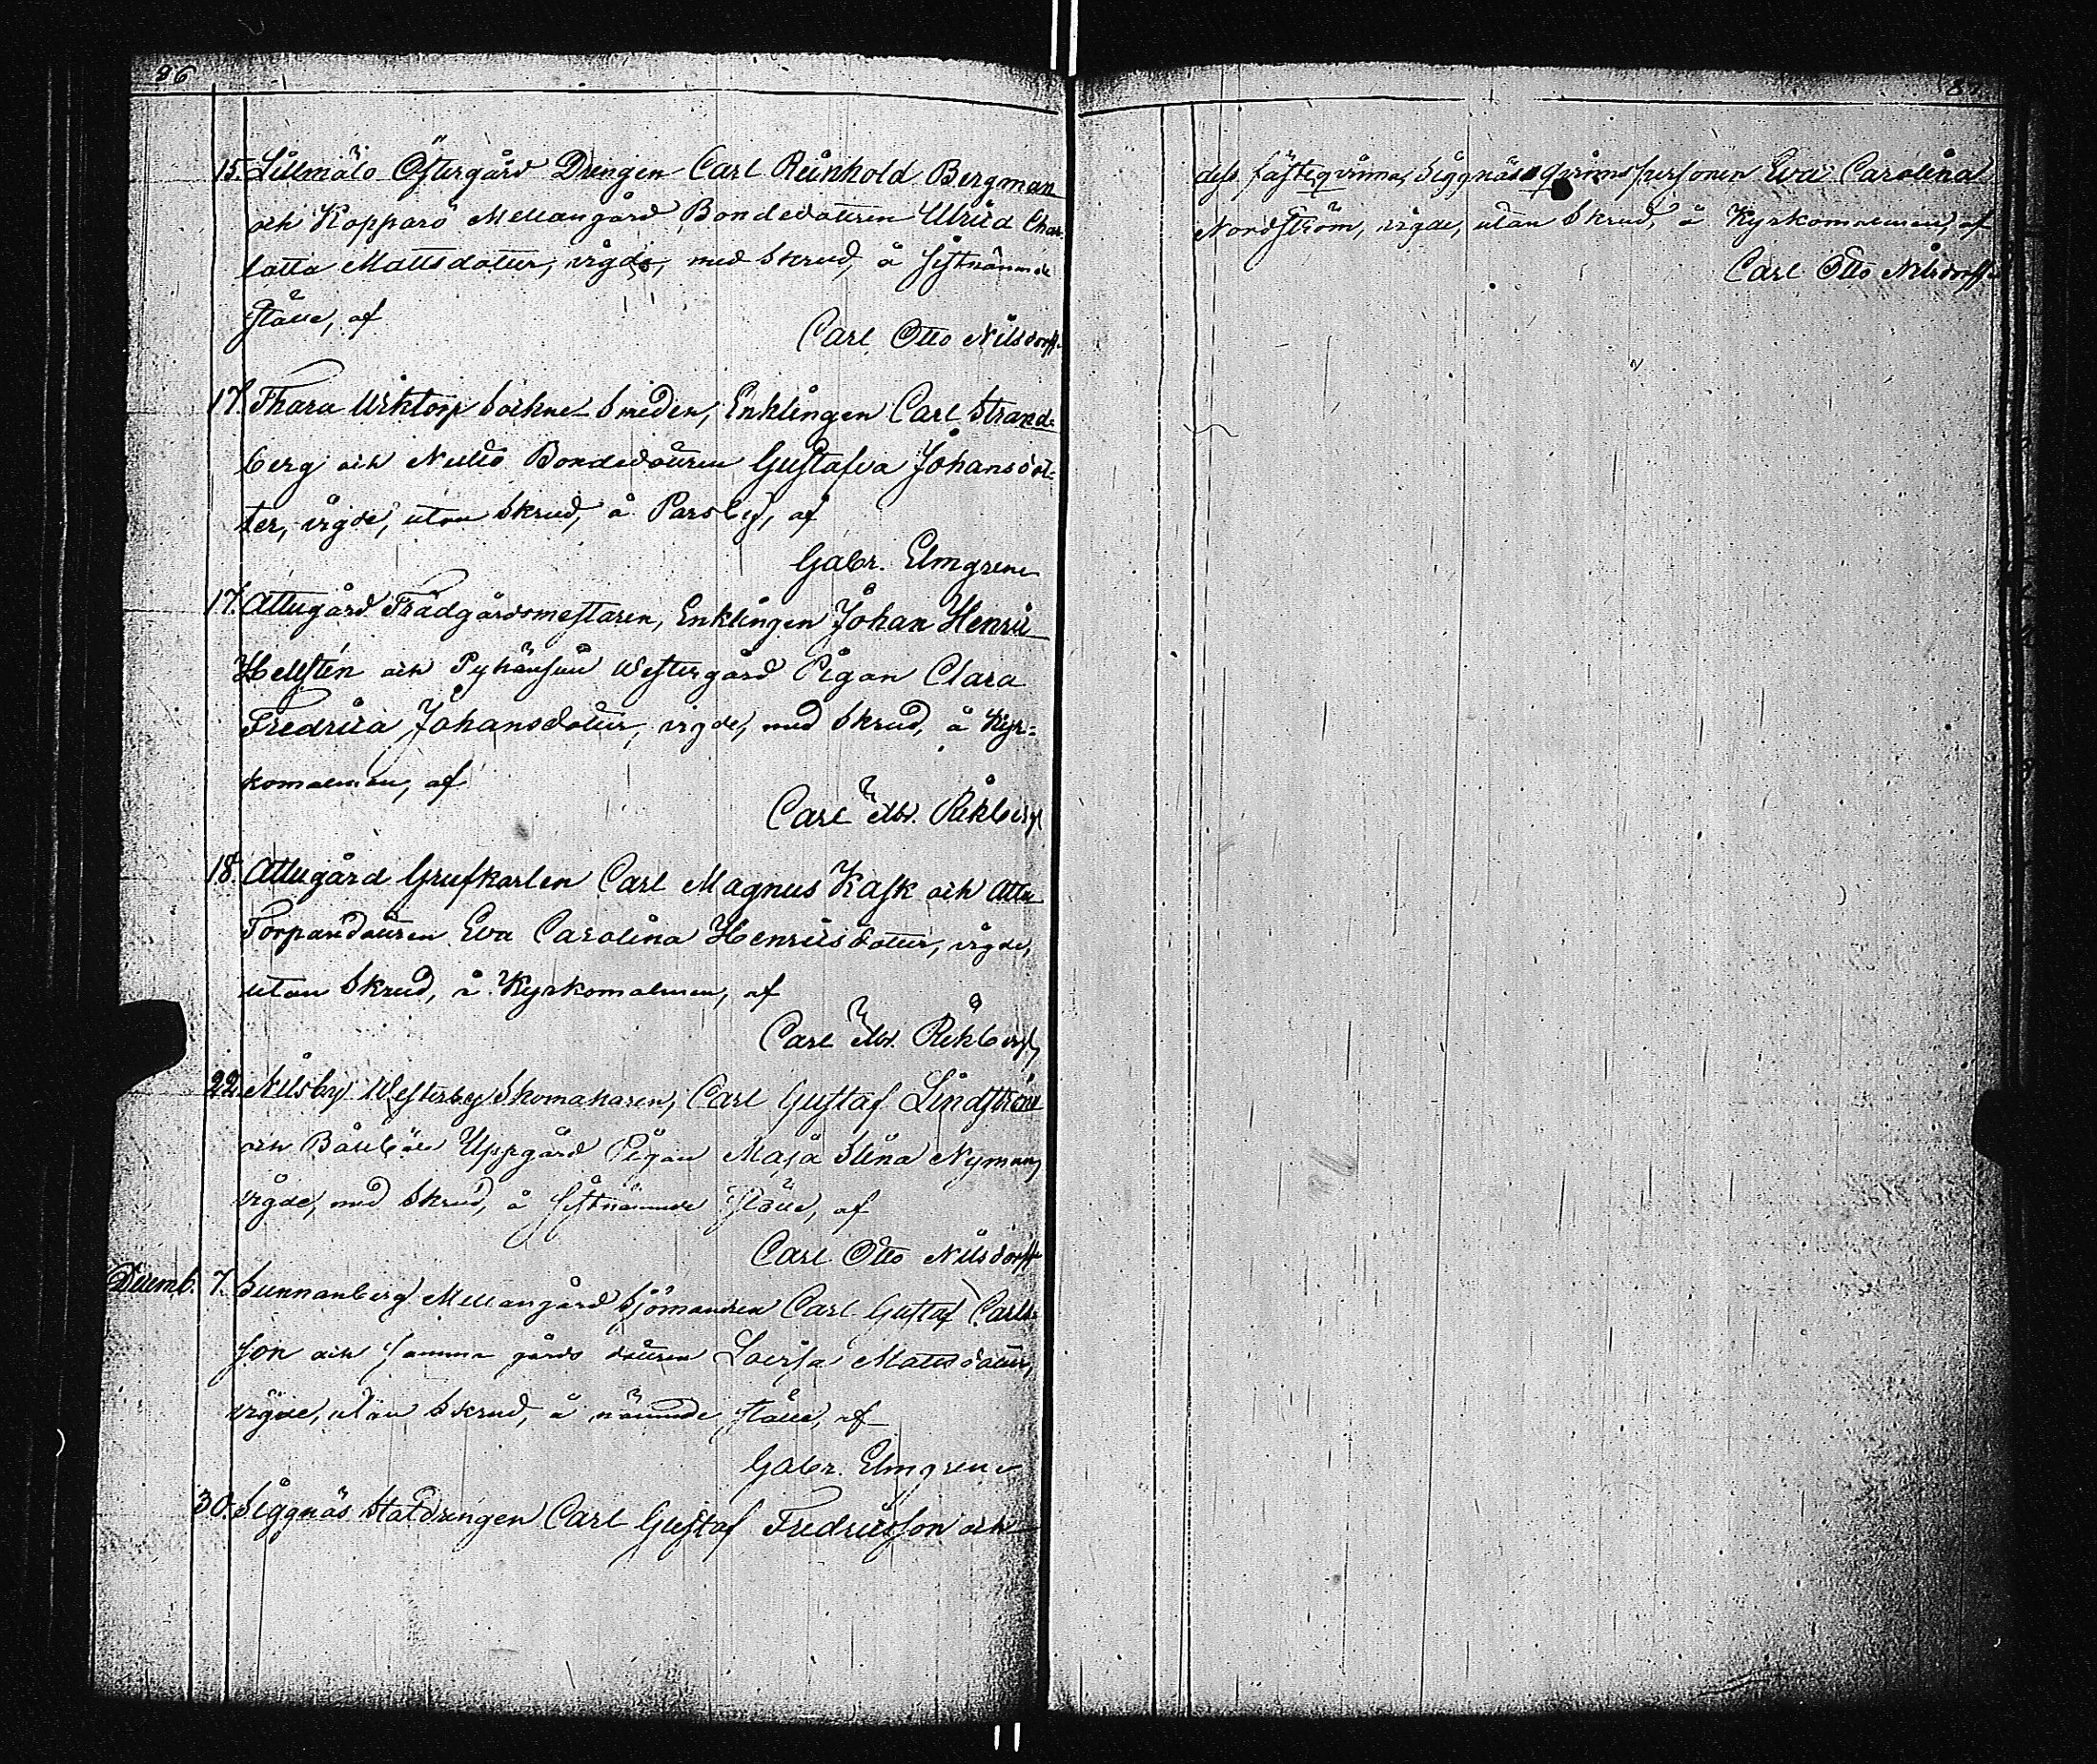 86
15. Lillmälö Östergård Drengen Carl Reinhold Bergman
och Kopparö Mellangård Bondedottren Ulrica Char-
lotta Mattsdotter, vigde, med Skrud, å sistnämnde
ställe, af
Carl Otto Nilsdorff.
17. Thara Sockne-Smeden, Enklingen Carl Strand-
berg och Bondedottren Gustafva Johansdot-
ter, vigde, utan Skrud, å Parsby, af
Gabr. Elmgren
17. Attugård Trädgårdsmestaren, Enklingen Johan Henric
Hellstén och Westergård Pigan Clara
Fredrica Johansdotter, vigde, med Skrud, å Kyr-
komalmen, af
Carl Rikberg
18. Attugård Grufkarlen Carl Magnus Kask och Attu
Torparedottren Eva Carolina Henricsdotter, vigde,
utan Skrud, å Kyrkomalmen, af
Carl Rikberg
22. Nilsby Westerby Skomakaren, Carl Gustaf Lindström
och Uppgård Pigan Maja Stina Nyman,
vigde, med Skrud, å sistnämnde ställe, af
Carl Otto Nilsdorff
Decemb. 7. Sunnanberg Mellangård Sjömannen Carl Gustaf Carls-
son och samma gårds dottren Lovisa Mattsdotter,
vigde, utan Skrud, å nämnde ställe, af
Gabr. Elmgren
30. Siggnäs Statdrengen Carl Gustaf Fredricsson och
87
dess fästeqvinna, Siggnäs qvinspersonen Eva Carolina
Nordström, vigde, utan Skrud, å Kyrkomalmen, af
Carl Otto Nilsdorff.